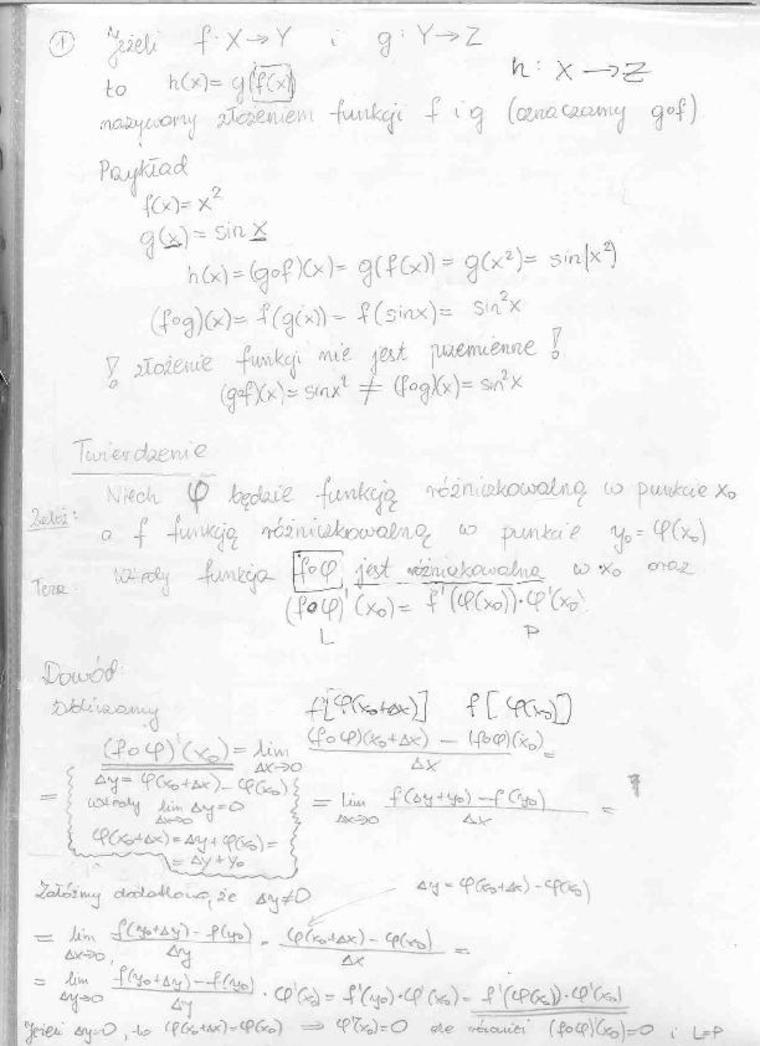 ① Jeżeli f: X → Y i g: Y → Z
h: X → Z
to h(x) = g(f(x))
nazywamy złożeniem funkcji f i g (oznaczamy g∘f)
Przykład
f(x) = x²
g(x) = sin x
h(x) = (g∘f)(x) = g(f(x)) = g(x²) = sin(x²)
(f∘g)(x) = f(g(x)) = f(sinx) = sin²x
! złożenie funkcji nie jest przemienne !
(g∘f)(x) = sinx² ≠ (f∘g)(x) = sin²x
Twierdzenie
Niech φ będzie funkcją różniczkowalną w punkcie x₀
Założ: a f funkcją różniczkowalną w punkcie y₀ = φ(x₀)
Teza: wtedy funkcja f∘φ jest różniczkowalna w x₀ oraz
(f∘φ)'(x₀) = f'(φ(x₀))·φ'(x₀)
L P
Dowód:
Obliczamy f[φ(x₀+Δx)] f[φ(x₀)]
(f∘φ)'(x₀) = lim Δx→0 (f∘φ)(x₀+Δx) − (f∘φ)(x₀) / Δx =
= Δy = φ(x₀+Δx) − φ(x₀)
wtedy lim Δx→0 Δy = 0
φ(x₀+Δx) = Δy + φ(x₀) =
= Δy + y₀
= lim Δx→0 f(Δy+y₀) − f(y₀) / Δx =
Załóżmy dodatkowo, że Δy ≠ 0
Δy = φ(x₀+Δx) − φ(x₀)
= lim Δx→0 f(y₀+Δy) − f(y₀) / Δy · φ(x₀+Δx) − φ(x₀) / Δx =
= lim Δy→0 f(y₀+Δy) − f(y₀) / Δy · φ'(x₀) = f'(y₀)·φ'(x₀) = f'(φ(x₀))·φ'(x₀)
Jeżeli Δy=0, to φ(x₀+Δx) = φ(x₀) ⇒ φ'(x₀)=0 ale również (f∘φ)'(x₀)=0 i L=P